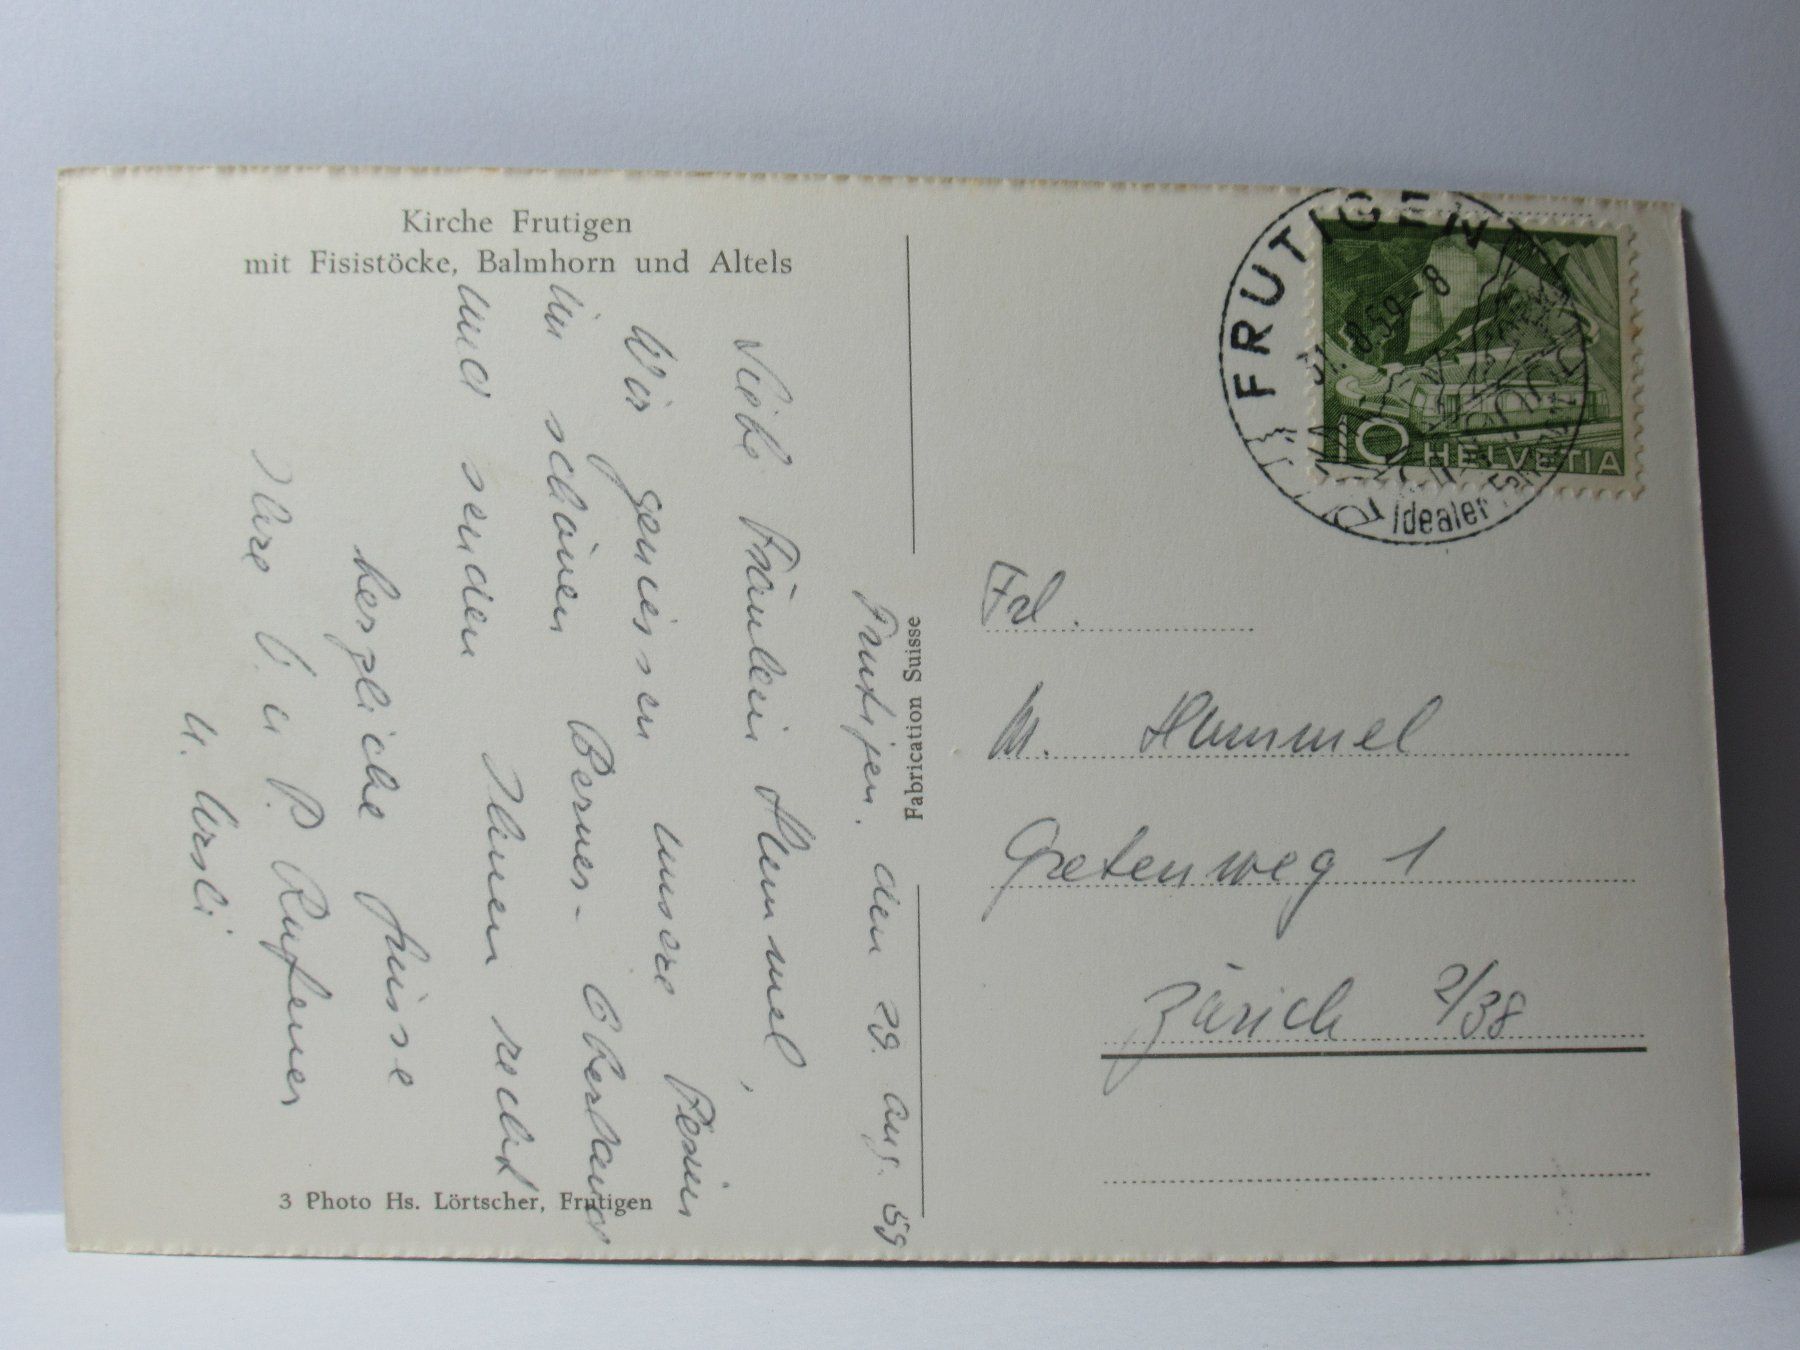 Kirche Frutigen
mit Fisistöcke, Balmhorn und Altels
Frutigen. den 29. Aug. 59
Liebe Fräulein Hummel,
Wir geniessen unsere Ferien
im schönen Berner-Oberland
und senden Ihnen recht
herzliche Grüsse
Ihre O. u P. Rufener
u. Ursli
3 Photo Hs. Lörtscher, Frutigen
Fabrication Suisse
FRUTIGEN
8.59-8
Idealer
10 HELVETIA
Frl.
M. Hummel
Gretenweg 1
Zürich 2/38